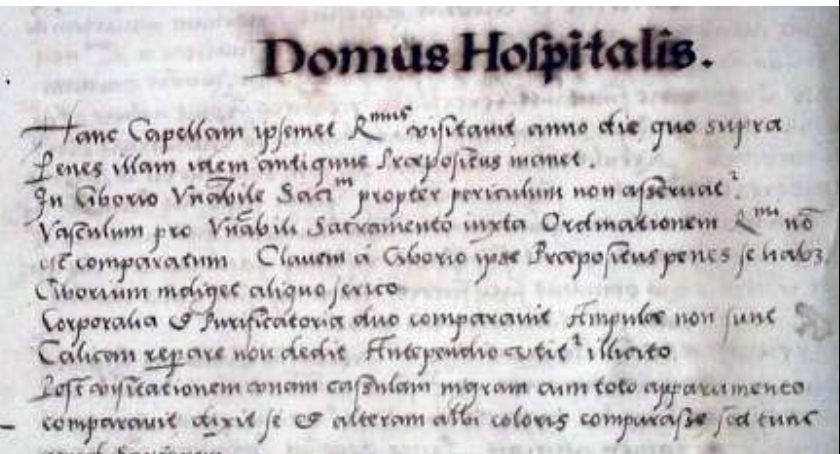 Domus Hoſpitalis.
Hanc Capellam ipſemet R^mus viſitavit anno die quo supra
Penes illam idem antiquus Præpoſitus manet.
In Ciborio Vn̄abile Sacr^m propter periculum non aſſervat^2.
Vaſculum pro Vn̄abili Sacramento iuxta Ordinationem R^mi nō
eſt comparatum Clavem á Ciborio ipse Præpoſitus penes ſe habꝫ
Ciborium indiget aliquo ſerico
Corporalia & Purificatoria duo comparavit Ampulæ non ſunt
Calicem reꝑare non dedit Antependio utit^2 illicito.
Poſt viſitationem unam caſſulam nigram cum toto apparamento
comparavit dixit ſe & alteram albi coloris comparaſſe ſed tunc